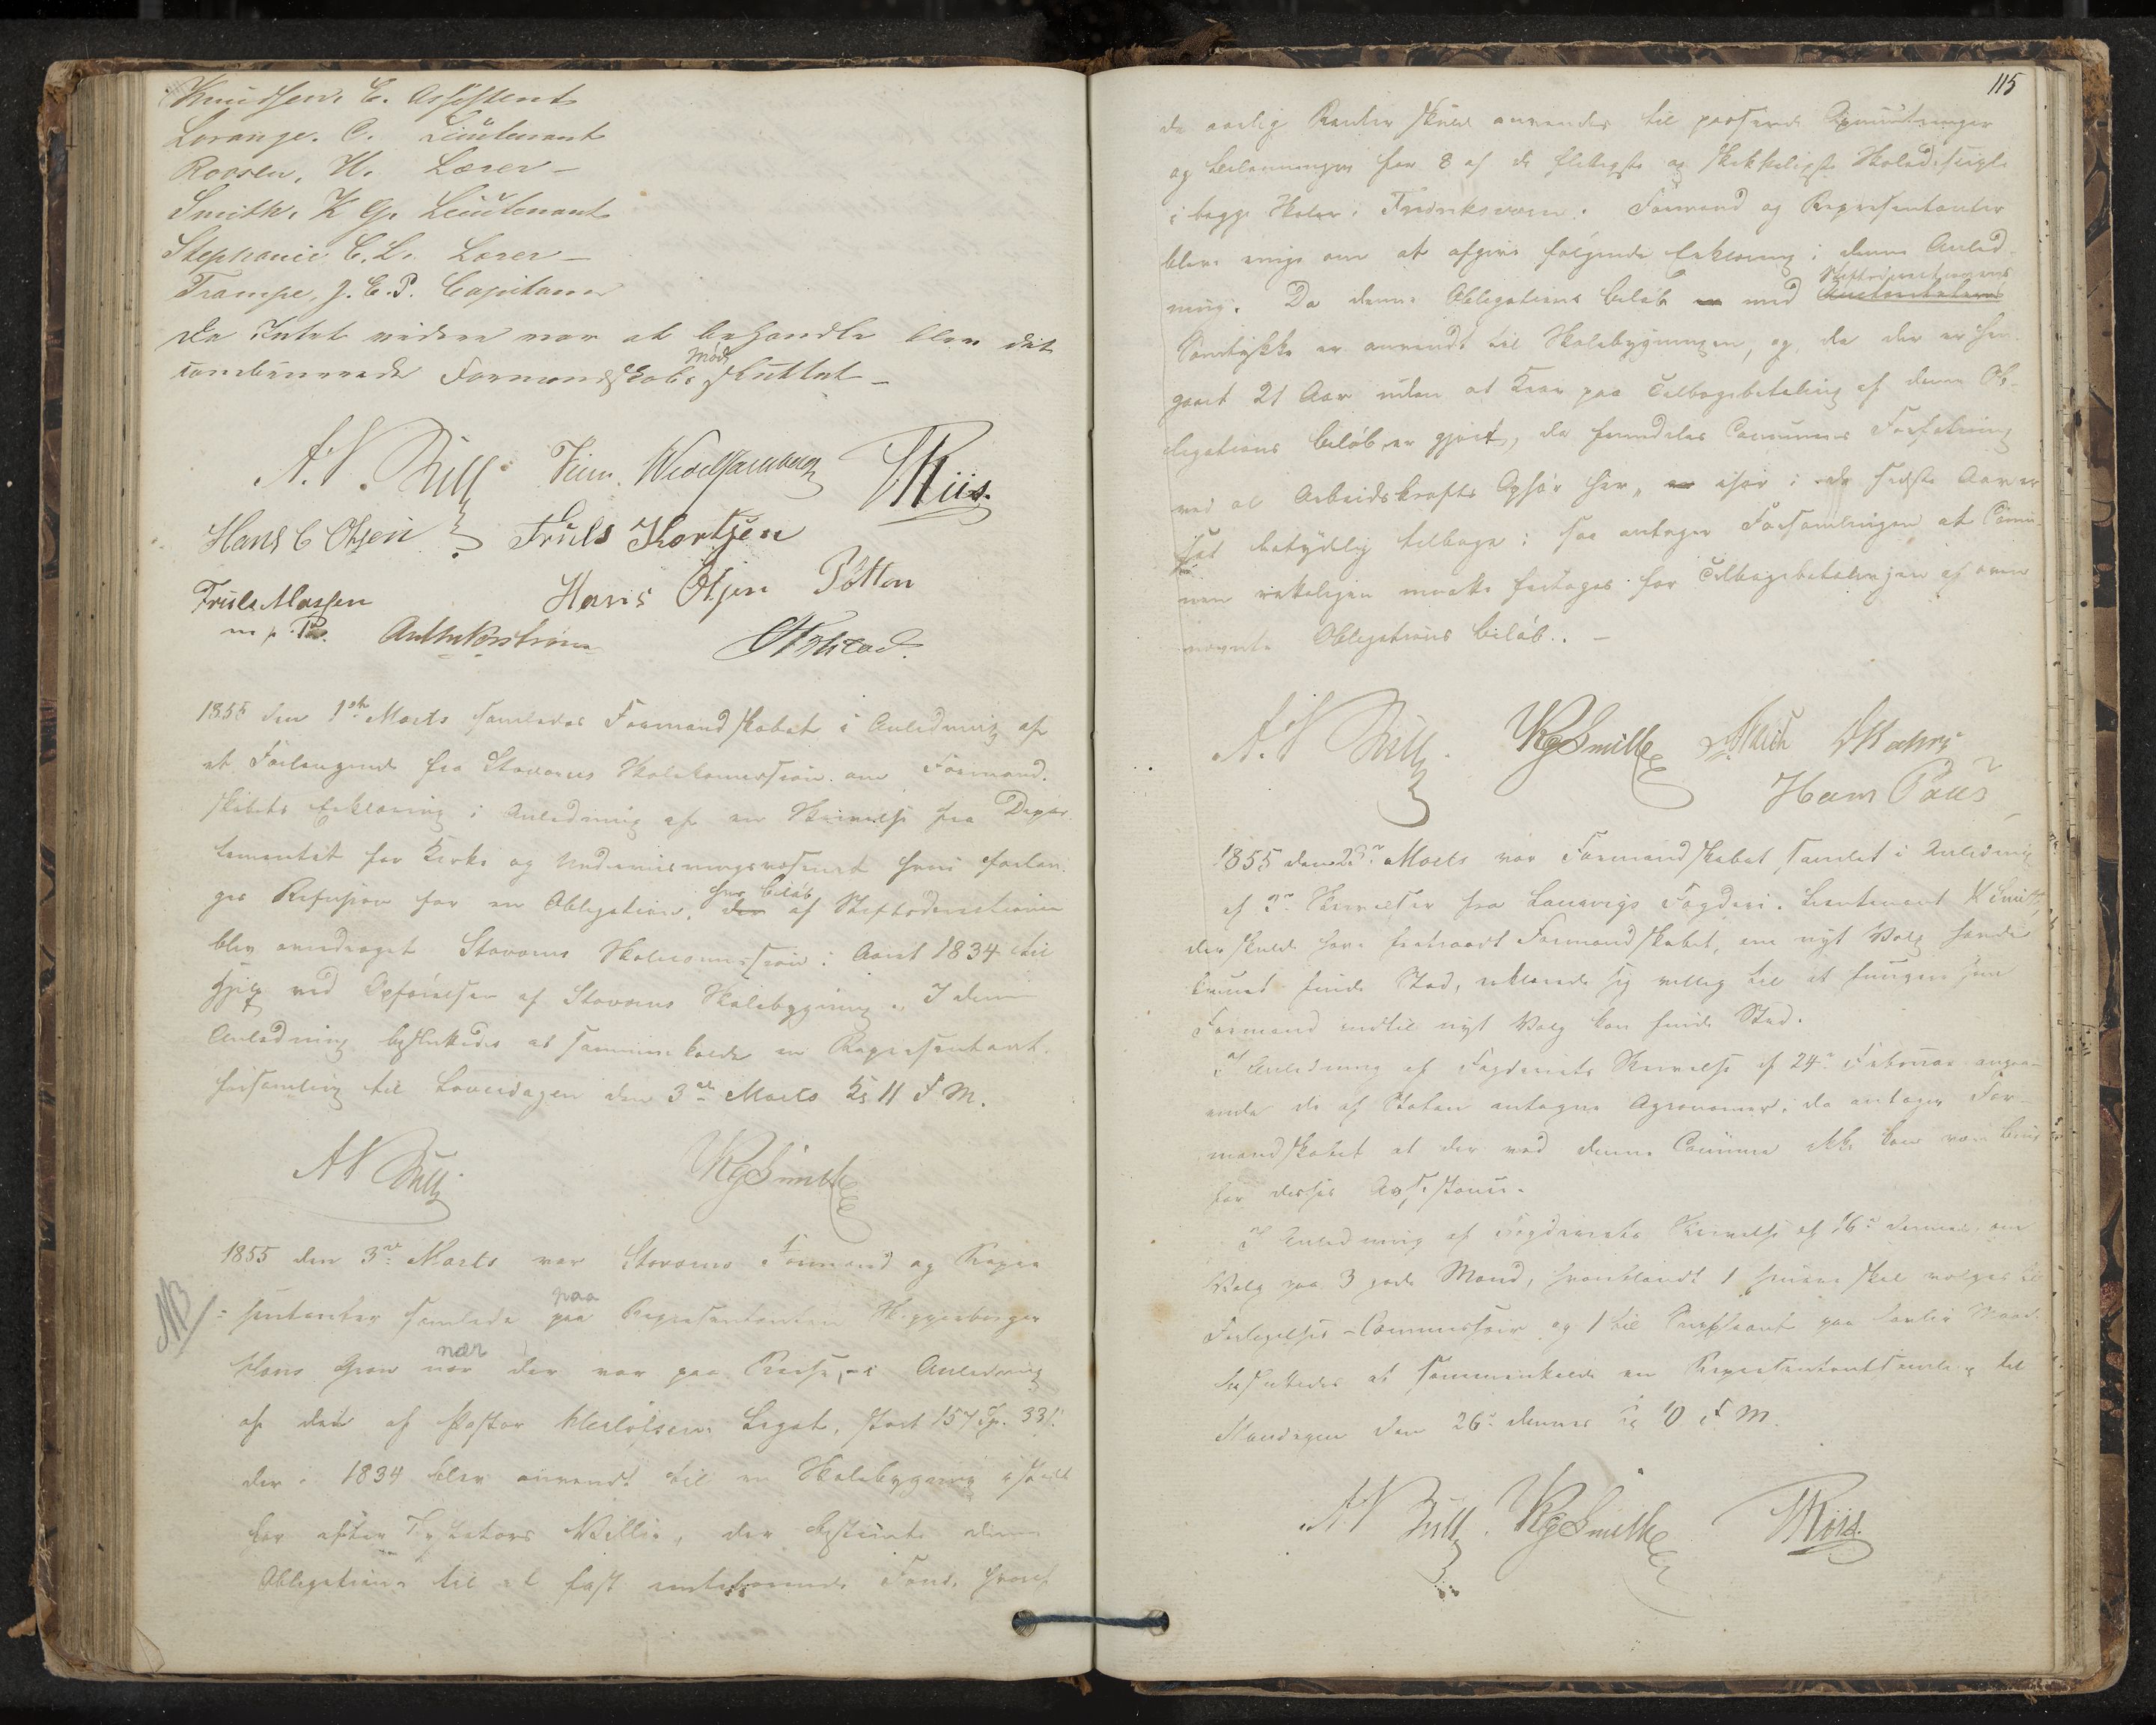 Knudsen, C. Assistent
Lorange. C. Lieutenant
Roosen, H. Lærer –
Smith, K G. Lieutenant
Stephanie C. L. Lærer –
Trampe, J. C. P. Capitain
Da Intet videre var at behandle blev det
combinerede Formandskabs Møde sluttet –
A. N. Vim. Wedelfarnberg Riis.
Hans C Olsen Truls Kortsen
Truls Massen Hans Olsen Pötten
m. p. P.
1855 den 1ste Marts samledes Formandskabet i Anledning af
et Forlangende fra Staværns Skolekommission om Formand-
skabets Erklæring i Anledning af en Skrivelse fra Depar-
tementet for Kirke og Undervisningsvæsenet hvori forlan-
ges Refusion for en Obligation, der hvis Beløb af Stiftsdirectionen
blev overdraget Staværns Skolecommission i Aaret 1834 til
Hjelp ved Opførelsen af Staværns Skolebygning. I denne
Anledning besluttedes at sammenkalde en Repræsentant-
forsamling til Løverdagen den 3de Marts Kl 11 F M.
A N KGSmith
1855 den 3de Marts var Staværns Formænd og Repræ
NB
sentanter samlede paa paa Repræsentanten Skipperborger
Hans Gron nær nær der var paa Reise, – i Anledning
af det af Pastor Legat, stort 157 Sp. 33 s.
der i 1834 blev anvendt til en Skolebygning istedet
for efter Testators Villie, der bestemte denne
Obligation til et fast rentebærende Fond, hvoraf
115
de aarlig Renter skulde anvendes til passende Opmuntringer
og Belønninger for 8 af de flittigste og skikkeligste Skoledisciple
i begge Skoler i Fredriksværn. Formænd og Repræsentanter
blev enige om at afgive følgende Erklæring i denne Anled-
ning. Da denne Obligations Beløb er med Auctoritetens Stiftsdirectionens
Samtykke er anvendt til Skolebygningen, og da der er hen-
gaaet 21 Aar uden at Krav paa Tilbagebetaling af denne Ob-
ligations Beløb er gjort, da fremdeles Communens Forfatning
ved al Arbeidskrafts Ophør her, er især i de sidste Aar er
sat betydelig tilbage: saa antager Forsamlingen at Commu-
nen rekeligen maatte fritages for Tilbagebetalingen af oven
nævnte Obligations Beløb. –
A. N KGSmith
Hans Paus
1855 den Marts var Formandskabet samlet i Anledning
af 3de Skrivelser fra Laurvigs Fogderi. Lieutenant K Smith,
der skulde have fratraadt Formandskabet, om nyt Valg havde
kunnet finde Sted, erklærede sig villig til at fungere som
Formand indtil nyt Valg kan finde Sted.
I Anledning af Fogderiets Skrivelse af 24de Februar angaa-
ende de af Staten antagne Agronomer, da antager For-
mandskabet at der ved denne Commune ikke kan være Brug
for deres Assistance.
I Anledning af Fogderiets Skrivelse af 16de dennes om
Valg paa 3 gode Mænd, hvoriblandt 1 senere skal vælges til
Forligelses-Commissair og 1 til Suppleant paa samme Maade
besluttedes at sammenkalde en Repræsentantsamling til
Mandagen den 26de dennes Kl 10 F M.
A. N KGSmith Riis.